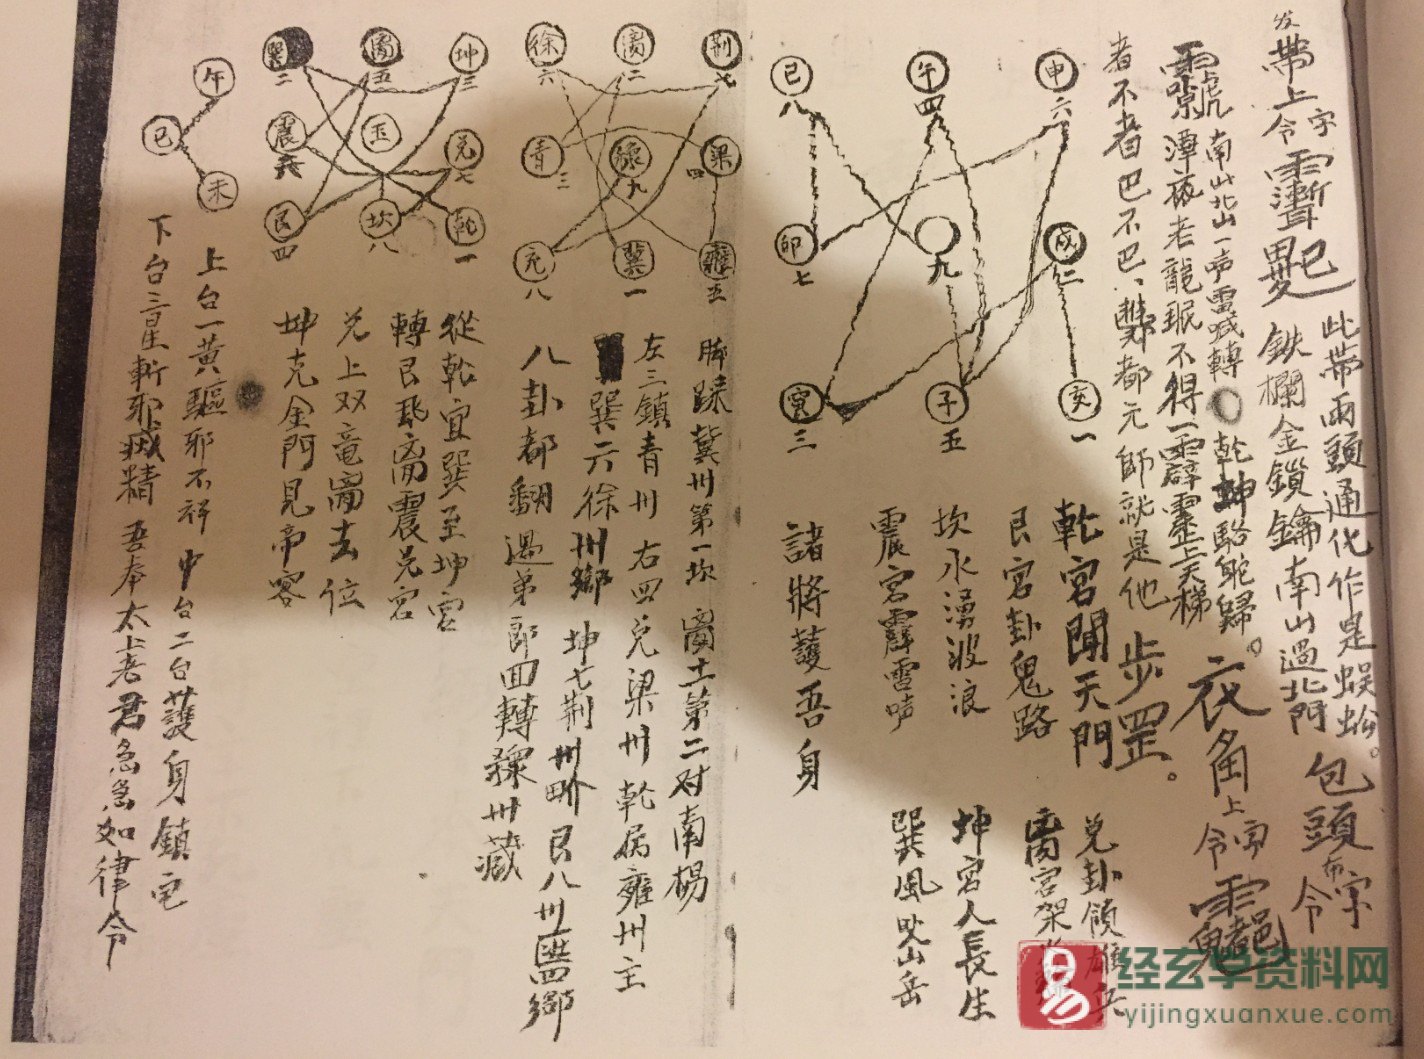 带上令字
此帶兩頭通化作是蜈蚣。
鉄欄金鎖鑰南山過北門
包頭布令字
南山北山一声雷喊轉
乾坤駱駝歸。
衣角上令字
潭底老龍眠不得一霹靂上天梯
者不者巴不巴
都元師就是他
步罡。
申
六
午
四
巳
八
戌
二
九
卯
七
亥
一
子
五
寅
三
乾宮聞天門
兑卦領雄兵
艮宮卦鬼路
离宮架
坎水湧波浪
坤宮人長生
震宮霹雷声
巽風吹山岳
諸將護吾身
荆
七
离
二
徐
六
梁
四
豫
九
青
三
雍
五
冀
一
兖
八
脚踩冀州第一坎
离士第二对南楊
左三鎮青州右四兑梁州乾居雍州主
巽六徐州鄉坤七荆州界艮八州
鄉
八卦都翻過弟郎回轉豫州藏
坤
三
离
五
巽
二
兑
七
玉
震
六
乾
一
坎
八
艮
四
從乾宜巽至坤宮
轉艮飛离震兑宮
兑上双竜离去位
坤克金門見帝客
午
巳
未
上台一黄驅邪不祥中台二台護身鎮宅
下台三星斬邪滅精吾奉太上老君急急如律令
经玄学资料网
yijingxuanxue.com